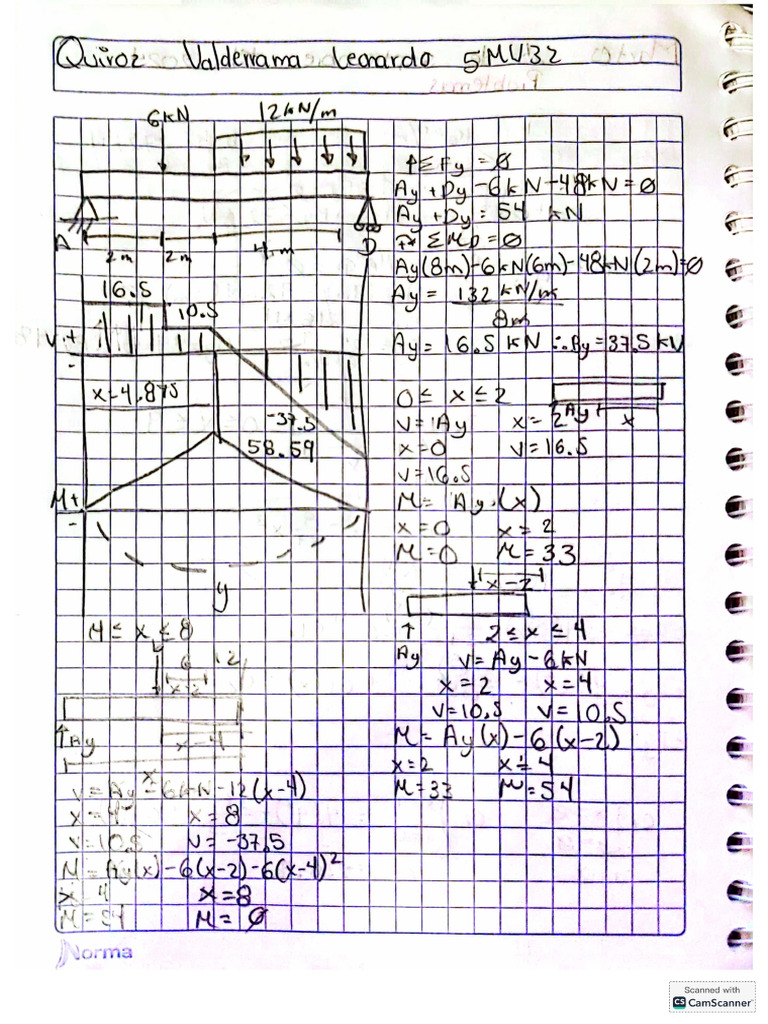 Quiroz Valderrama Leonardo 5MV32
6kN
12kN/m
A
D
2m 2m 4m
16.5
10.5
V +
-
x=4.875
-37.5
58.59
M+
-
y
↑ΣFy = 0
Ay + Dy - 6kN - 48kN = 0
Ay + Dy = 54 kN
ΣMD = 0
Ay(8m) - 6kN(6m) - 48kN(2m) = 0
Ay = 132 kN/m
8m
Ay = 16.5 kN ∴ By = 37.5 kN
0 ≤ x ≤ 2
Ay x
V = Ay x = 2
x = 0 V = 16.5
V = 16.5
M = Ay (x)
x = 0 x = 2
M = 0 M = 33
x-2
↑ 2 ≤ x ≤ 4
Ay V = Ay - 6kN
x = 2 x = 4
V = 10.5 V = 10.5
M = Ay(x) - 6(x-2)
x = 2 x = 4
M = 33 M = 54
4 ≤ x ≤ 8
6 12
x-2
↑Ay x-4
x
V = Ay - 6kN - 12(x-4)
x = 4 x = 8
V = 10.5 V = -37.5
M = Ay(x) - 6(x-2) - 6(x-4)²
x = 4 x = 8
M = 54 M = 0
Norma
Scanned with
CS CamScanner